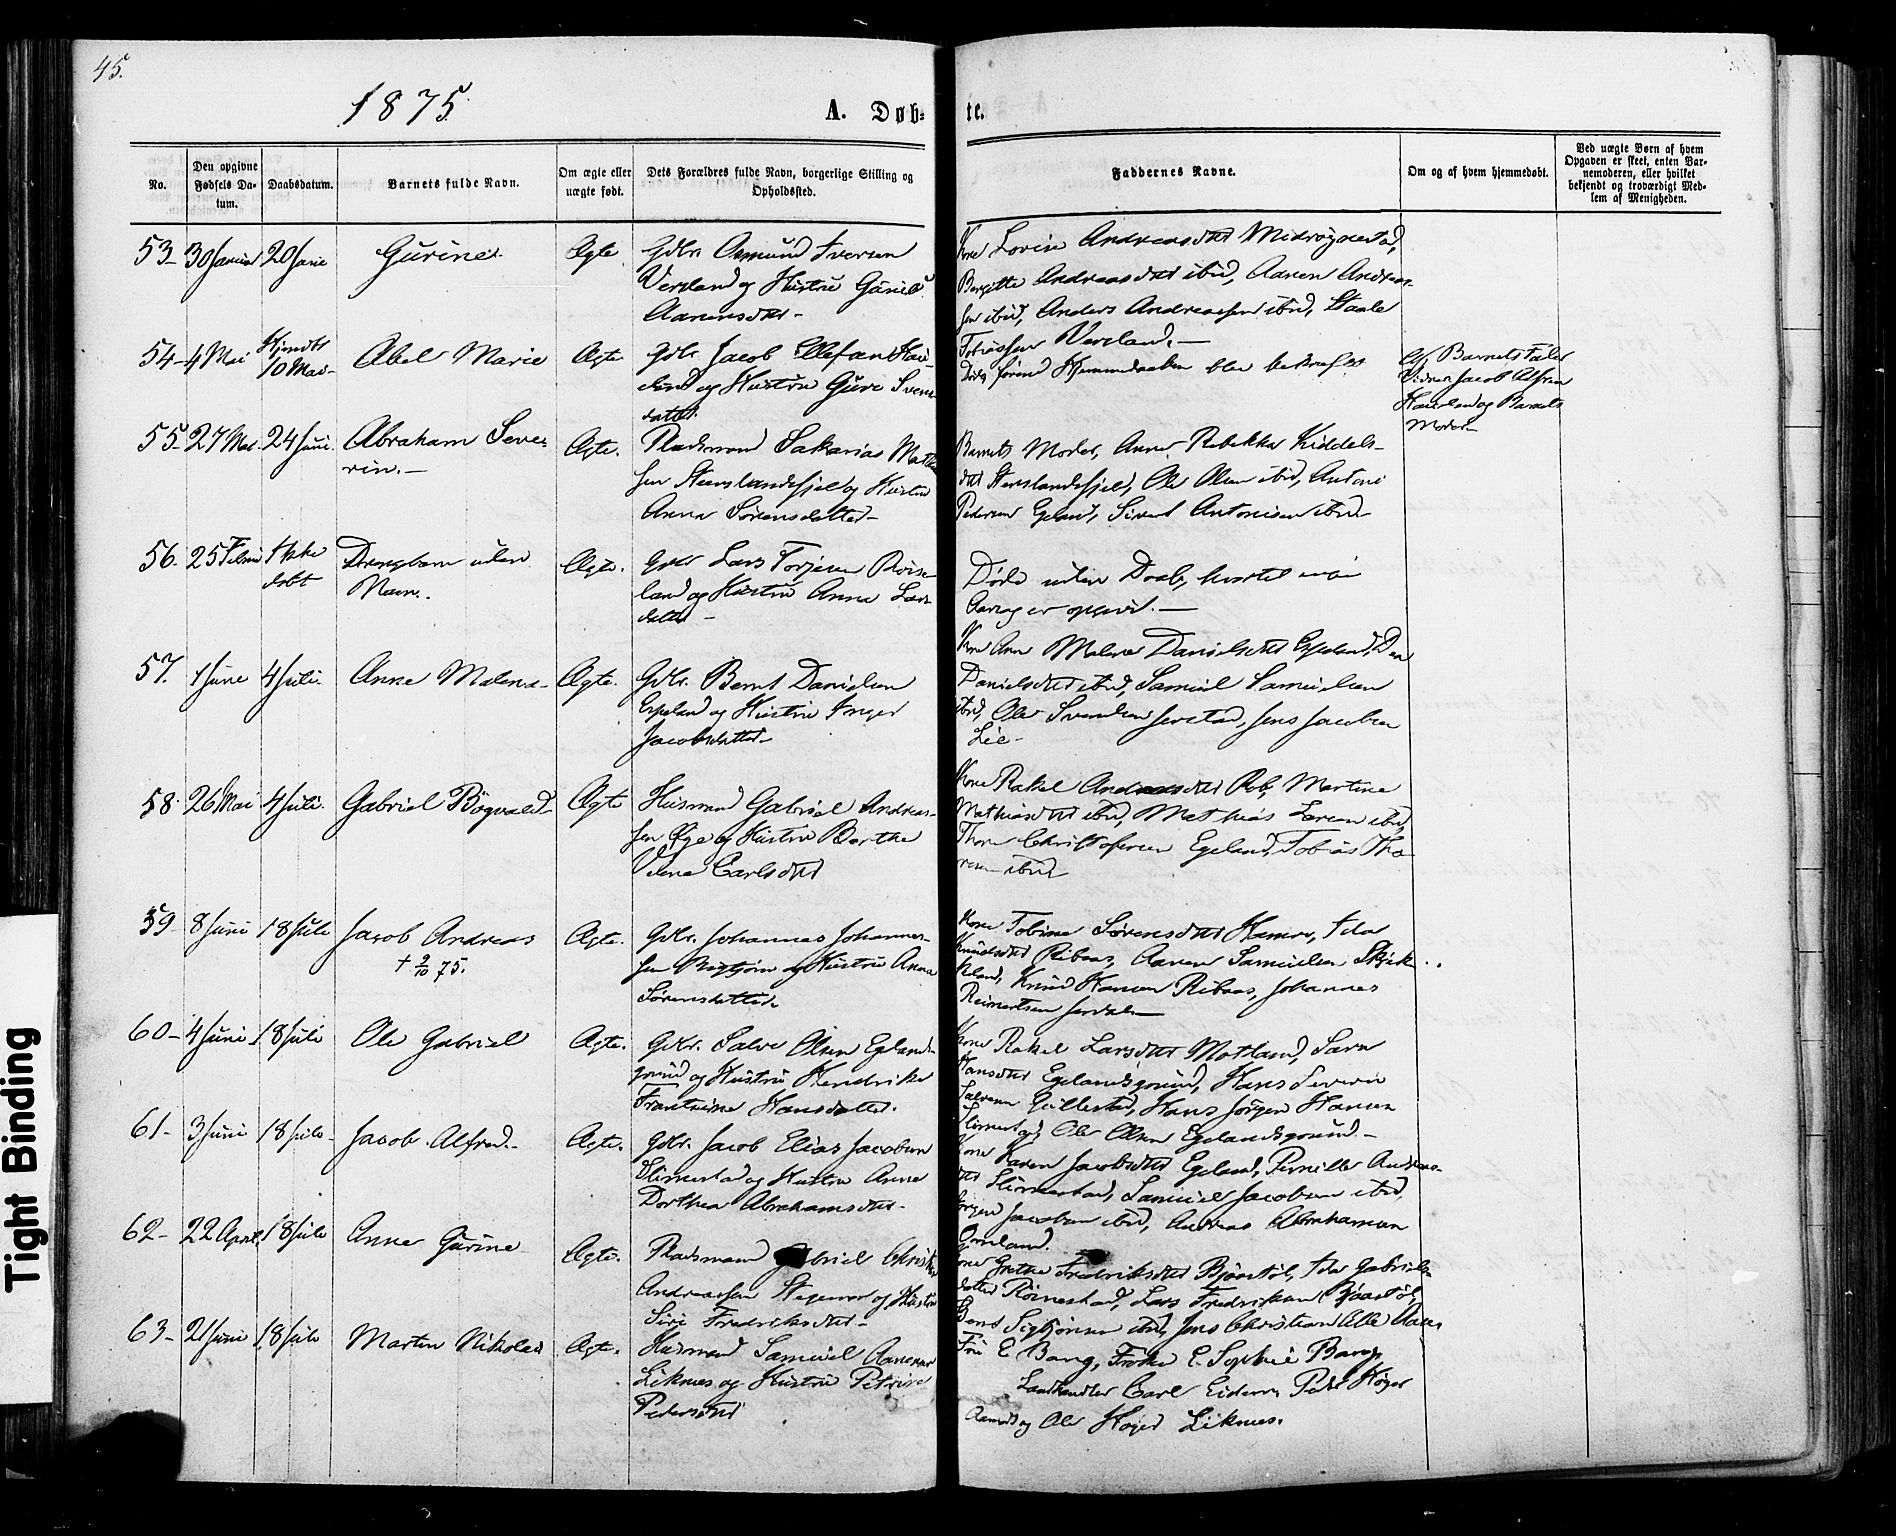 45.
1875.
A. Døb-
te.
No.
Den opgivne Fødsels Da-
tum.
Daabsdatum.
Barnets fulde Navn.
Om ægte eller
uægte født.
Dets Forældres fulde Navn, borgerlige Stilling og
Opholdssted.
Faddernes Navne.
Om og af hvem hjemmedøbt.
Ved uægte Børn af hvem
Opgaven er skeet, enten Bar-
nemoderen, eller hvilket
bekjendt og troværdigt Med-
lem af Menigheden.
53- 20 Juni Gurine. Ægte Gdbr. Osmund Iversen
Versland og Hustru Guriel
Aanensdtr-
Kone Lovise Andreasdtr Midrøgnestad,
Bergitte Andreasdtr ibid, Aanen Andreas-
sen ibid, Anders Andreassen ibid, Staale
Tobiassen Versland.-
54- 4 Mai Hjemdbt
10 Mai- Abel Marie Ægte Gdbr. Jacob Ellefsen Hau-
land og Hustru Guri Svens-
datter
Hjemmedaaben blev bekræftet
af Barnets Fader
Vidner Jacob
Hauland og Barnets
Moder-
55- 27 Mai. 24 Juni. Abraham Seve-
rin.- Ægte. Pladsmand Sakarias Math
sen Steenslandsfjel og Hustru
Anna Sørensdatter-
Barnets Moder, Anne Rebekka Kiddels-
dtr Steenslandsfjel, Ole Olsen ibid, Antoni
Pedersen Egeland, Sivert Antonisen ibid-
56. 25 Ikke
døbt Drengebarn uden
Navn.. Ægte. Gdbr Lars Torjesen Røise-
land og Hustru Anna Lars
datter-
Døde uden Daab, hvortil ingen
Aarsag er opgivet.-
57. 1 June 4 Juli. Anne Malena- Ægte. Gdbr. Bernt Danielsen
Espeland og Hustru Inger
Jacobsdatter-
Kone Ane Malene Danielsdtr Espeland,
Danielsdtr ibid, Samuel Samuelsen
ibid, Ole Svendsen Jerstad, Jens Jacobsen
Lie-
58. 26 Mai 4 Juli. Gabriel Bøgvald- Ægte Husmand Gabriel Andreas-
sen Øye og Hustru Berthe
Velene Carlsdtr
Kone Rakel Andreasdtr Rob, Martine
Mathiasdtr ibid, Mathias Larsen ibid,
Thore Christofersen Egeland, Tobias Tho-
resen ibid
59- 8 Juni 18 Juli Jacob Andreas
† 9/10 75. Ægte. Gdbr. Johannes Johannes-
sen og Hustru Anna
Sørensdatter
Kone Tobine Sørensdtr Hamre, Ida
Knudsdtr Ribaas, Aanen Samuelsen
Knud Hansen Ribaas, Johannes
Reinertsen
60- 4 Juni 18 Juli Ole Gabriel Ægte. Gdbr. Salve Olsen Egelands-
grund og Hustru Hendrike
Frantsine Hansdatter.
Kone Rakel Larsdtr Motland, Sara
Hansdtr Egelandsgrund, Hans Severin
Salvesen Gullestad, Hans Jørgen Hansen
Slimestad, Ole Olsen Egelandsgrund.-
61- 3 Juni 18 Juli- Jacob Alfred.- Ægte. Gdbr. Jacob Elias Jacobsen
Slimestad og Hustru Anne
Dorthea Abrahamsdtr-
Kone Karen Jacobsdtr Egeland, Pernille Andreas-
dtr Slimestad, Samuel Jacobsen ibid,
Jørgen Jacobsen ibid, Andreas Abrahamsen
62- 22 April. 18 Juli Anne Gurine Ægte. Pladsmand Gabriel Christian
Andreassen Stegemoen og Hustru
Siri Fredriksdtr-
Kone Grethe Fredriksdtr Bjaastøl, Ida Gabriels-
datter Rørnestad, Lars Fredriksen Bjaastøl,
Bernt Sigbjørnsen ibid, Jens Christian
63- 2 Juni 18 Juli Martin Nikolai Ægte. Husmand Samuel Aanensen
Liknes og Hustru Petrine
Pedersdtr
Fru E Bang, Frøken E. Sophie Bang,
Landhandler Carl Eidem, Peder Høyer
og Ole Høyer Liknes.
Tight Binding